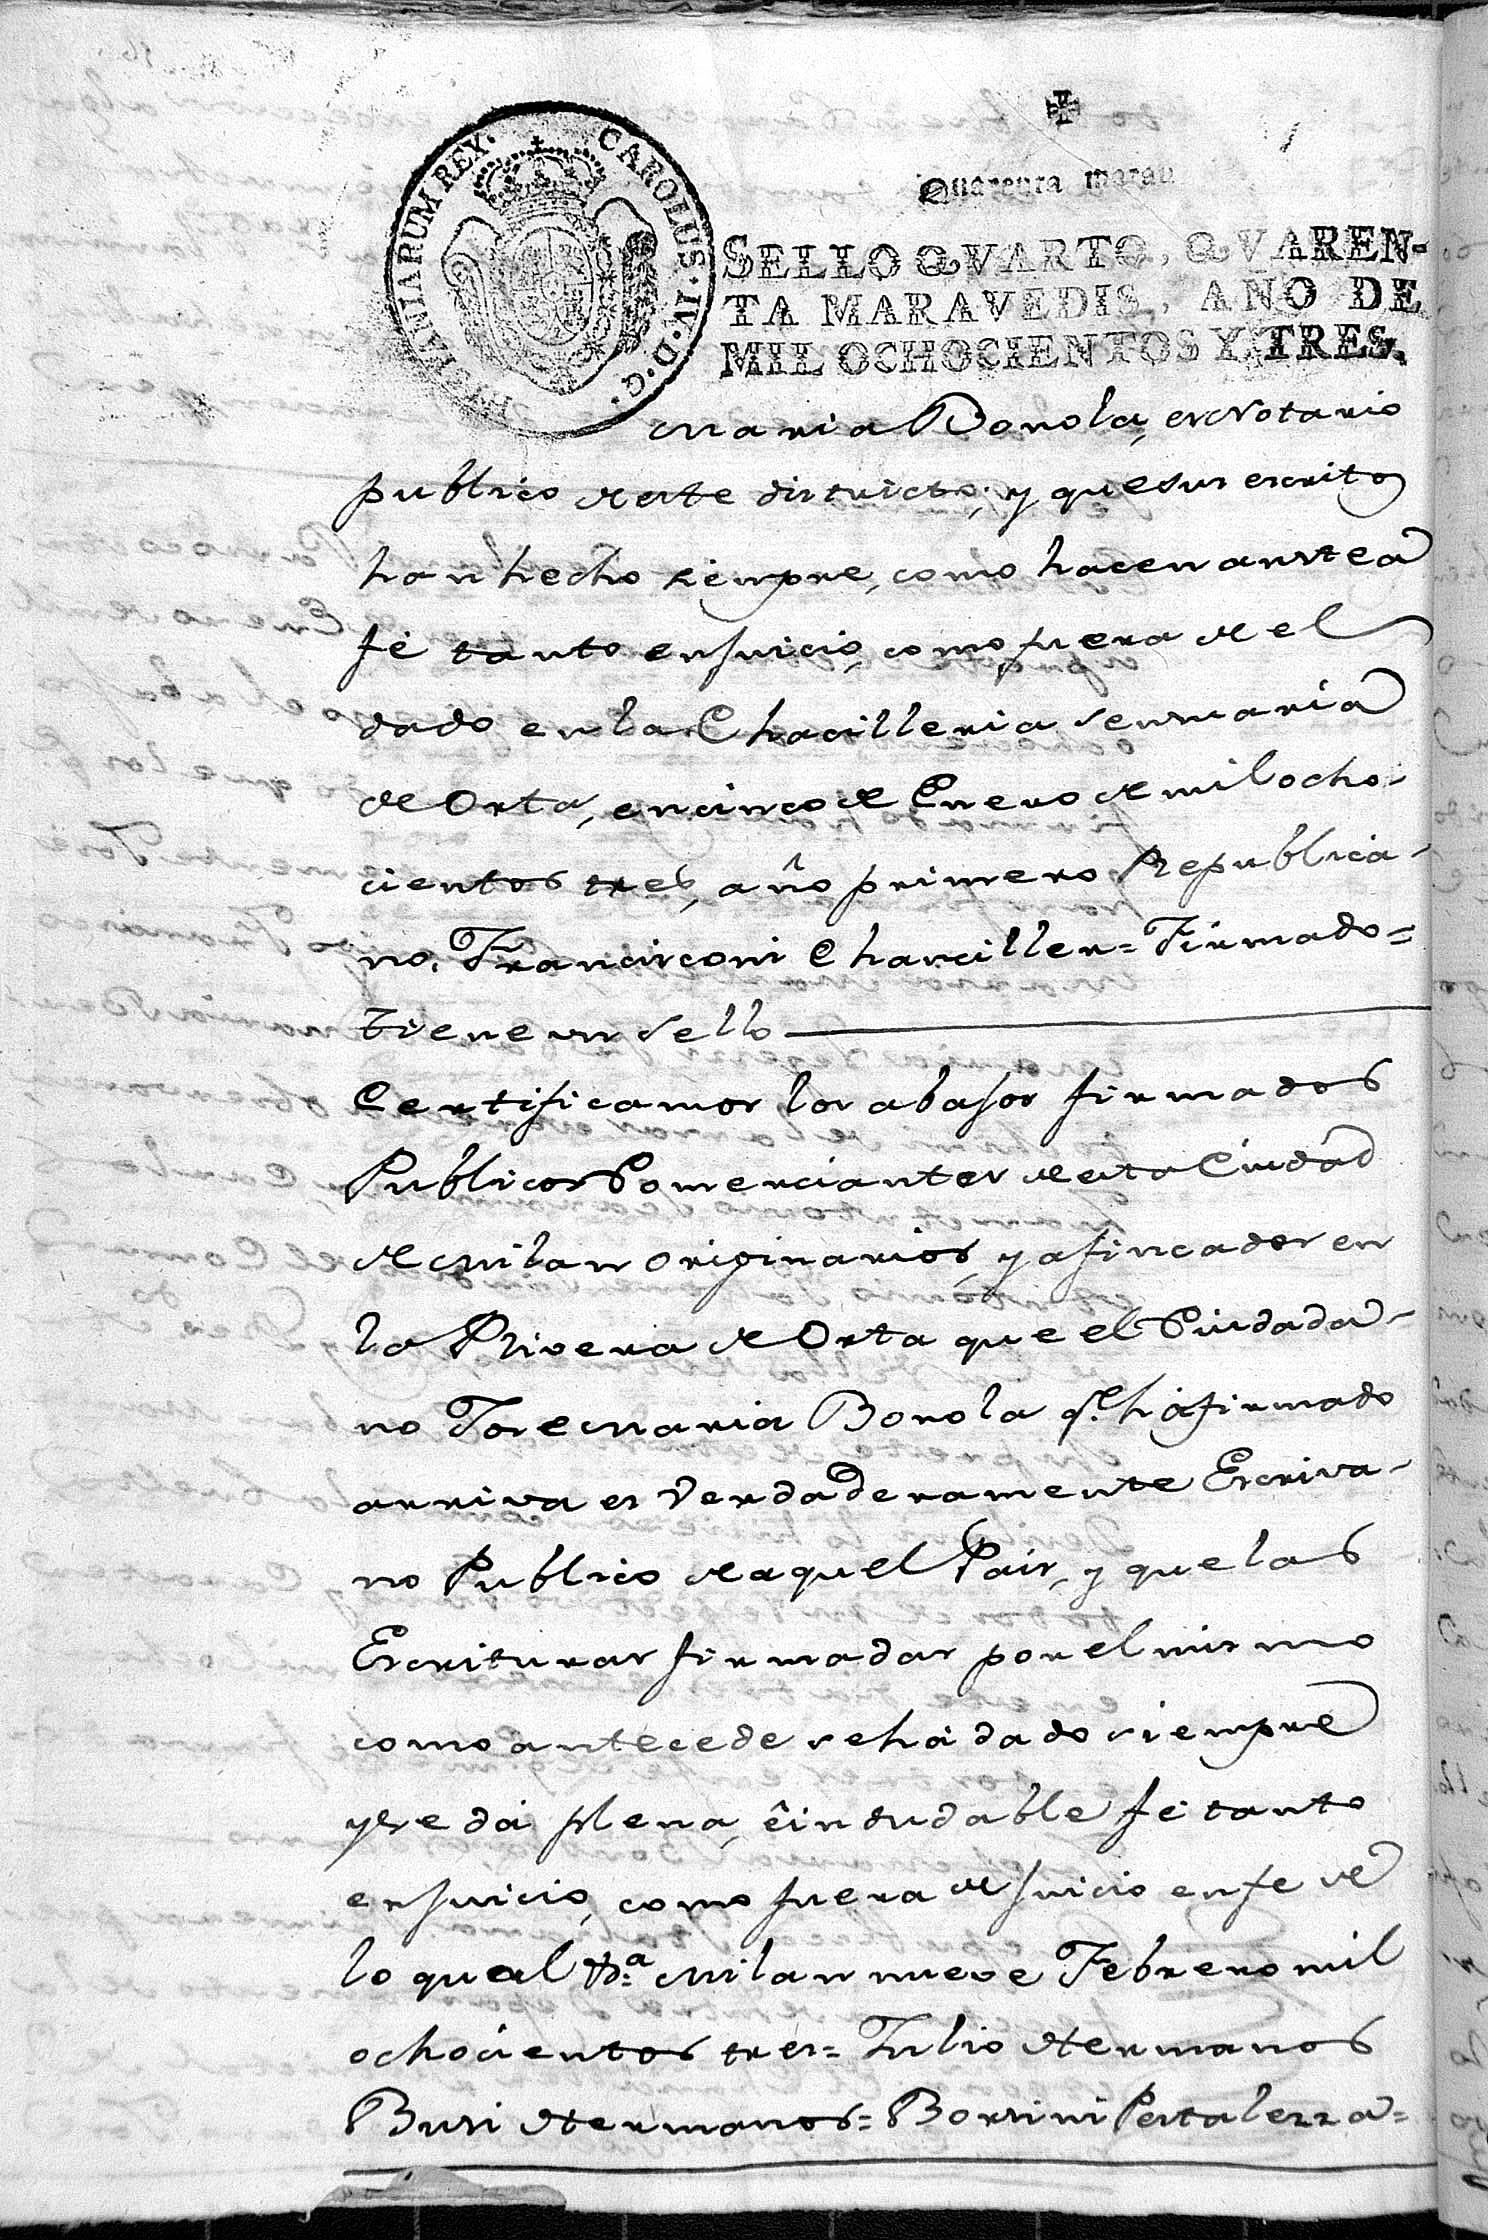 Quarenta marav
CAROLUS·IV·D·G·HISPANIARUM REX·
SELLO QVARTO, QVAREN-
TA MARAVEDIS, AÑO DE
MIL OCHOCIENTOS Y TRES.
Maria Bonola, es Notario
publico de este districto, y que sus escritos
han hecho siempre, como hacen anstea
fé tanto en Juicio, como fuera de el
dado en la Chacilleria Senmaria
de Orta, en cinco de Enero de mil ocho-
cientos tres, año primero Republica-
no. Francisconi Chanciller = Firmado =
tiene un sello
Certificamos los abajos firmados
Publicos Comerciantes de esta Ciudad
de Milan originarios, y afincados en
la Rivera de Orta que el Ciudada-
no Jose Maria Bonola qe. há firmado
arriva es Verdaderamente Escriva-
no Publico de aquel Pais, y que las
Escrituras firmadas por el mismo
como antecede se há dado siempre
y se dá plena, é indudable fé tanto
en Juicio, como fuera de Juicio en fe de
lo qual &.ª Milan nueve Febrero mil
ochocientos tres = Julio Hermanos
Busi Hermanos = Borsini Pestalezza =